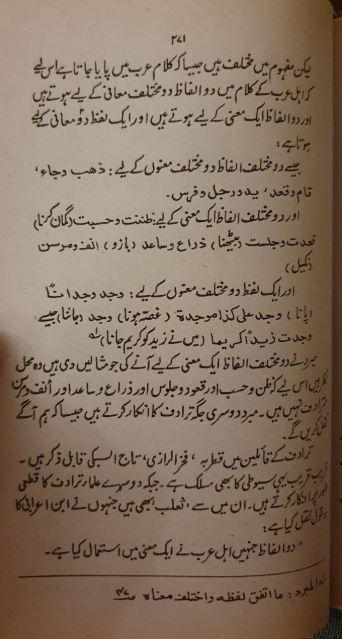 ۲۷۱
لیکن مفہوم میں مختلف ہیں جیسا کہ کلام عرب میں پایا جاتا ہے اس لیے
کہ اہل عرب کے کلام میں دو الفاظ دو مختلف معانی کے لیے ہوتے ہیں
اور دو الفاظ ایک معنیٰ کے لیے ہوتے ہیں اور ایک لفظ دو معانی کے لیے
ہوتا ہے :
جیسے دو مختلف الفاظ دو مختلف معنوں کے لیے : ذھب وجاء ،
قام وقعد ، ید ورجل وفرس ۔
اور دو مختلف الفاظ ایک معنیٰ کے لیے : ظننت وحسبت (گمان کرنا)
قعدت وجلست (بیٹھنا) ذراع وساعد (بازو) انف ومرسن
(نکیل)
اور ایک لفظ دو مختلف معنوں کے لیے : وجد وجدانا
(پانا) وجد علی کذا موجدۃ (غصّہ ہونا) وجد (جاننا) جیسے
وجدت زیداً کریما (میں نے زید کو کریم جانا) لہ
مبرد نے دو مختلف الفاظ ایک معنیٰ کے لیے آنے کی جو مثالیں دی ہیں وہ محل
نظر ہیں اس لیے کہ ظن وحسب اور قعود وجلوس اور ذراع وساعد اور أنف ومرسن
مترادف نہیں ہیں ۔ مبرد دوسری جگہ ترادف کا انکار کرتے ہیں جیسا کہ ہم آگے
نقل کریں گے ۔
ترادف کے قائلین میں قطرب ، فخر الرازی ، تاج السبکی قابل ذکر ہیں ۔
قریب قریب یہی سیوطی کا بھی مسلک ہے ۔ جبکہ دوسرے علماء ترادف کا قطعی
طور پر انکار کرتے ہیں ۔ ان میں سے ثعلب بھی ہیں جنہوں نے ابن اعرابی کا
قول نقل کیا ہے :
" دو الفاظ جنہیں اہل عرب نے ایک معنیٰ میں استعمال کیا ہے ۔
لہ المبرد : ما اتفق لفظہ واختلف معناہ